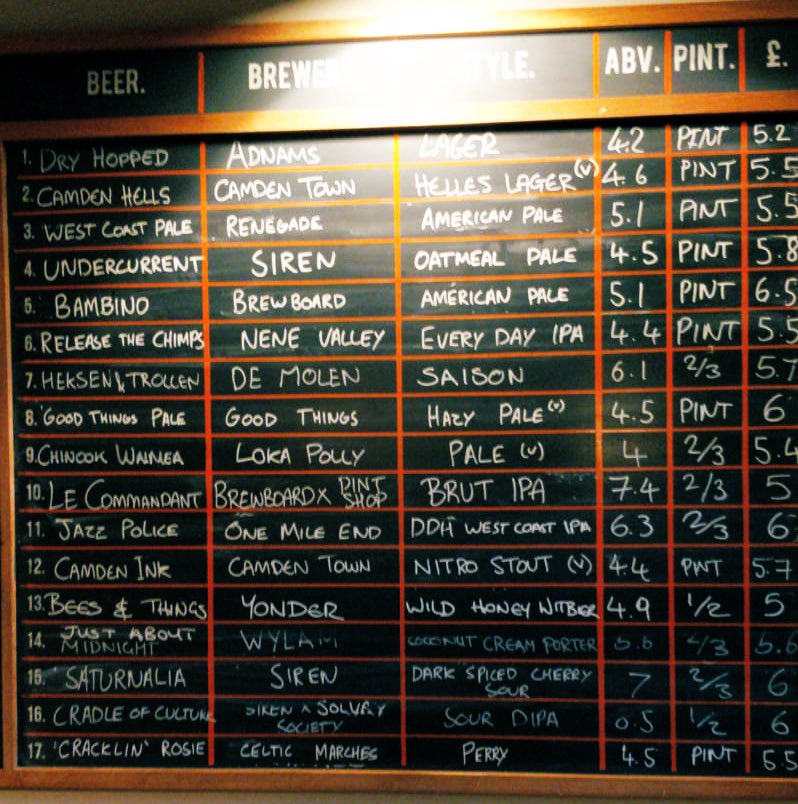 BEER. BREWE STYLE. ABV. PINT. £.
1. DRY HOPPED ADNAMS LAGER 4.2 PINT 5.2
2. CAMDEN HELLS CAMDEN TOWN HELLES LAGER (V) 4.6 PINT 5.5
3. WEST COAST PALE RENEGADE AMERICAN PALE 5.1 PINT 5.5
4. UNDERCURRENT SIREN OATMEAL PALE 4.5 PINT 5.8
5. BAMBINO BREWBOARD AMERICAN PALE 5.1 PINT 6.5
6. RELEASE THE CHIMPS NENE VALLEY EVERY DAY IPA 4.4 PINT 5.5
7. HEKSEN & TROLLEN DE MOLEN SAISON 6.1 2/3 5.7
8. GOOD THINGS PALE GOOD THINGS HAZY PALE (V) 4.5 PINT 6
9. CHINOOK WAIMEA LOKA POLLY PALE (V) 4 2/3 5.4
10. LE COMMANDANT BREWBOARD X PINT SHOP BRUT IPA 7.4 2/3 5
11. JAZZ POLICE ONE MILE END DDH WEST COAST IPA 6.3 2/3 6
12. CAMDEN INK CAMDEN TOWN NITRO STOUT (V) 4.4 PINT 5.7
13. BEES & THINGS YONDER WILD HONEY WITBIER 4.9 1/2 5
14. JUST ABOUT MIDNIGHT WYLAM COCONUT CREAM PORTER 5.6 2/3 5.6
15. SATURNALIA SIREN DARK SPICED CHERRY SOUR 7 2/3 6
16. CRADLE OF CULTURE SIREN X SOLVAY SOCIETY SOUR DIPA 1/2 6
17. 'CRACKLIN' ROSIE CELTIC MARCHES PERRY 4.5 PINT